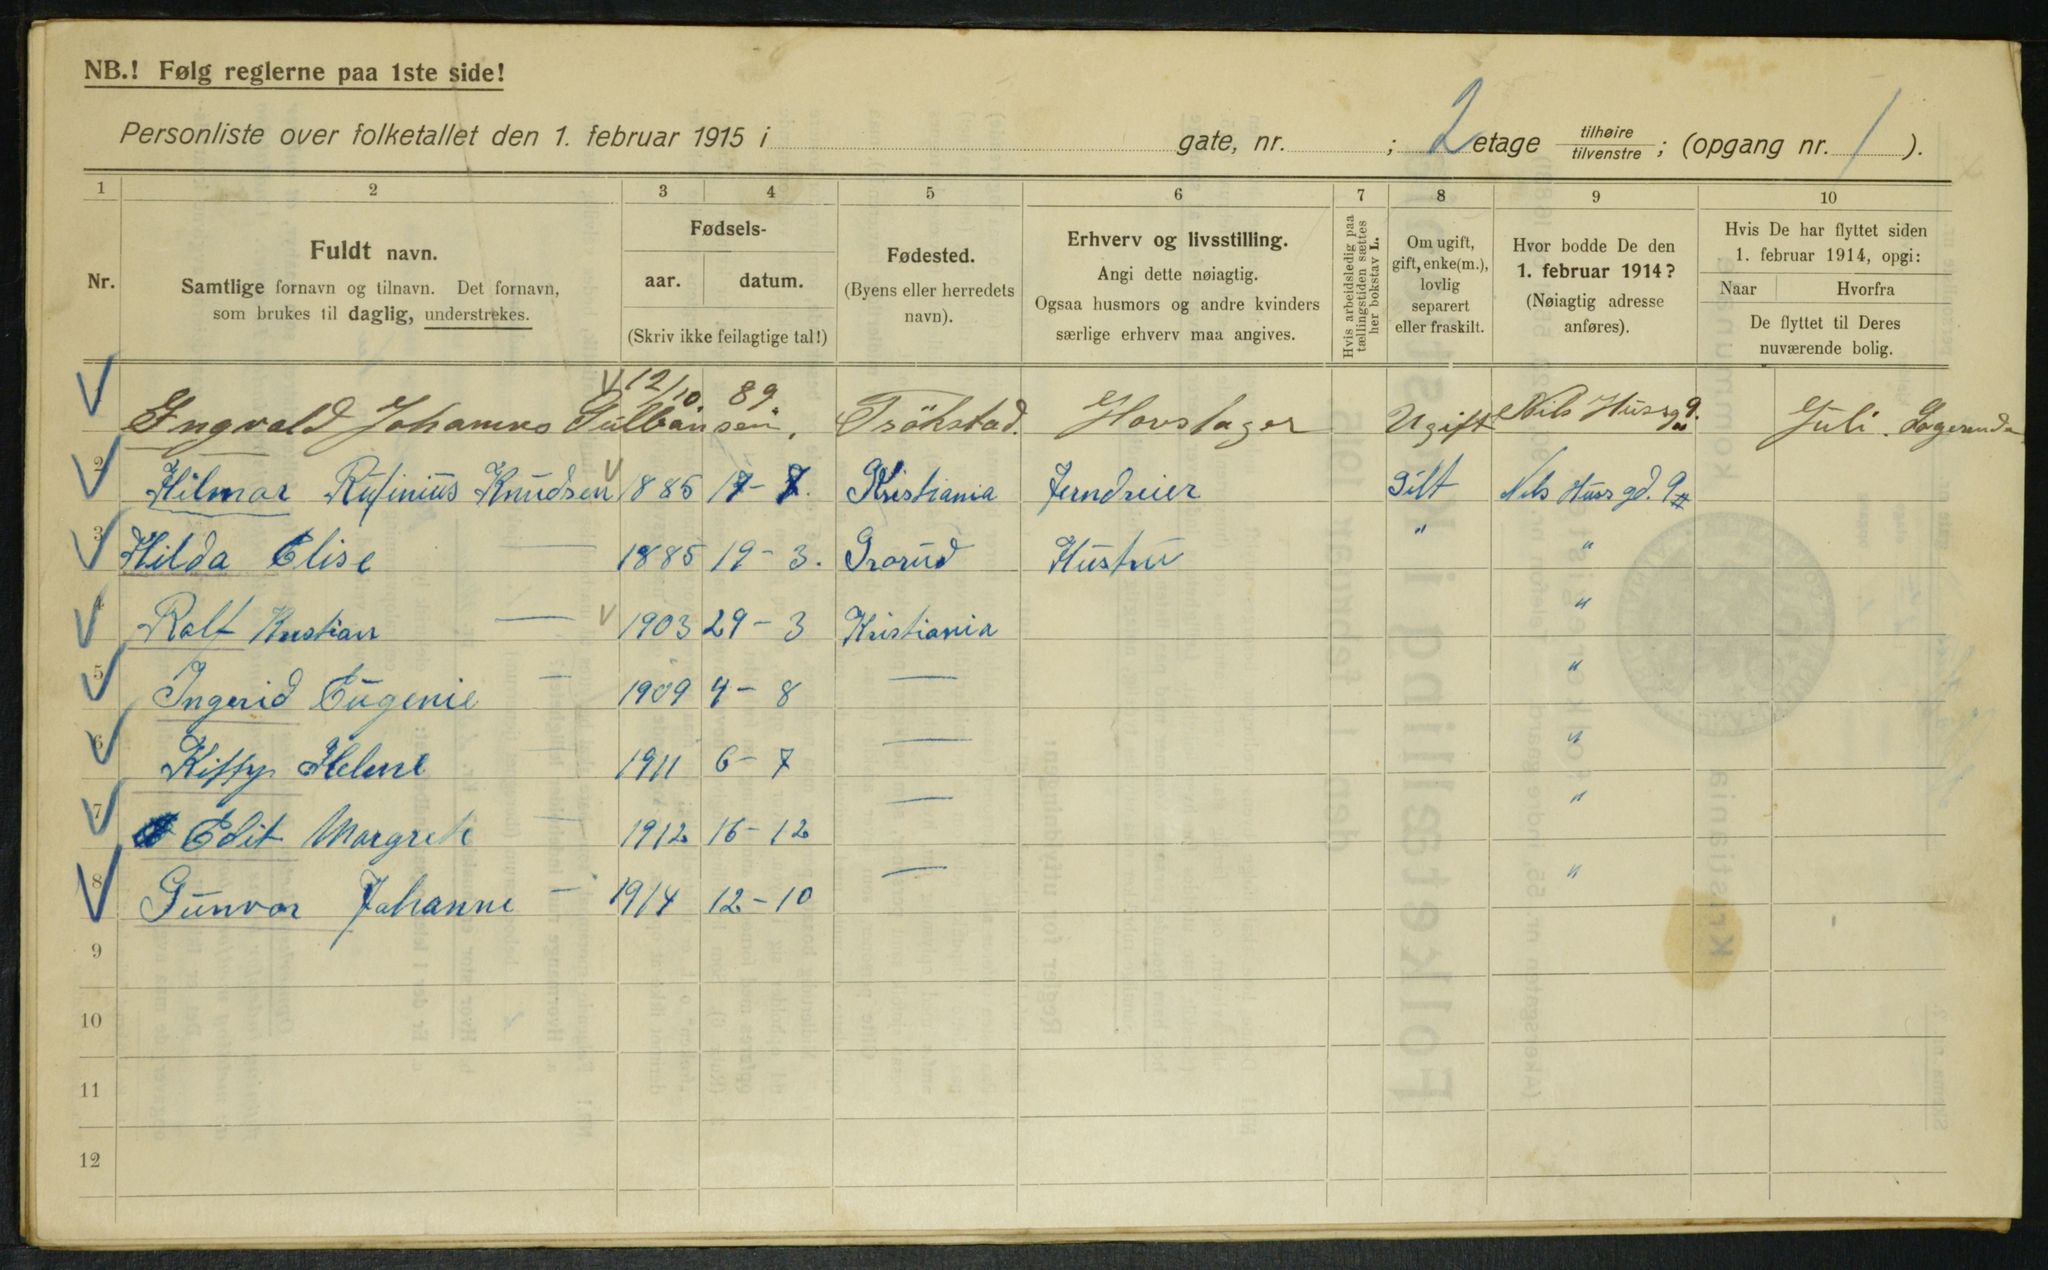 NB.! Følg reglerne paa 1ste side!
Personliste over folketallet den 1. februar 1915 i gate, nr. ; 2 etage tilhøire tilvenstre ; (opgang nr. 1 ).
1 2 3 4 5 6 7 8 9 10
Nr.
Fuldt navn.
Samtlige fornavn og tilnavn. Det fornavn,
som brukes til daglig, understrekes.
Fødsels-
aar. datum.
(Skriv ikke feilagtige tal!)
Fødested.
(Byens eller herredets
navn).
Erhverv og livsstilling.
Angi dette nøiagtig.
Ogsaa husmors og andre kvinders
særlige erhverv maa angives.
Hvis arbeidsledig paa
tællingstiden sættes
her bokstav L.
Om ugift,
gift, enke(m.),
lovlig
separert
eller fraskilt.
Hvor bodde De den
1. februar 1914?
(Nøiagtig adresse
anføres).
Hvis De har flyttet siden
1. februar 1914, opgi:
Naar Hvorfra
De flyttet til Deres
nuværende bolig.
1 Ingvald Johannes Gulbransen. 12/10 89. Trökstad. Hovslager Ugift Nils Hussgd. 9. Juli.
2 Hilmar Rufinius Knudsen 1885 17-7. Kristiania Jerndreier Gift Nils Huss gd. 9
3 Hilda Elise — 1885 19-3. Grorud Hustru " "
4 Rolf Kristian — 1903 29-3 Kristiania "
5 Ingerid Eugenie — 1909 4-8 — "
6 Kiffy Helene 1911 6-7 — "
7 Edit Margrete — 1912 16-12 — "
8 Gunvor Johanne — 1914 12-10 — "
9
10
11
12